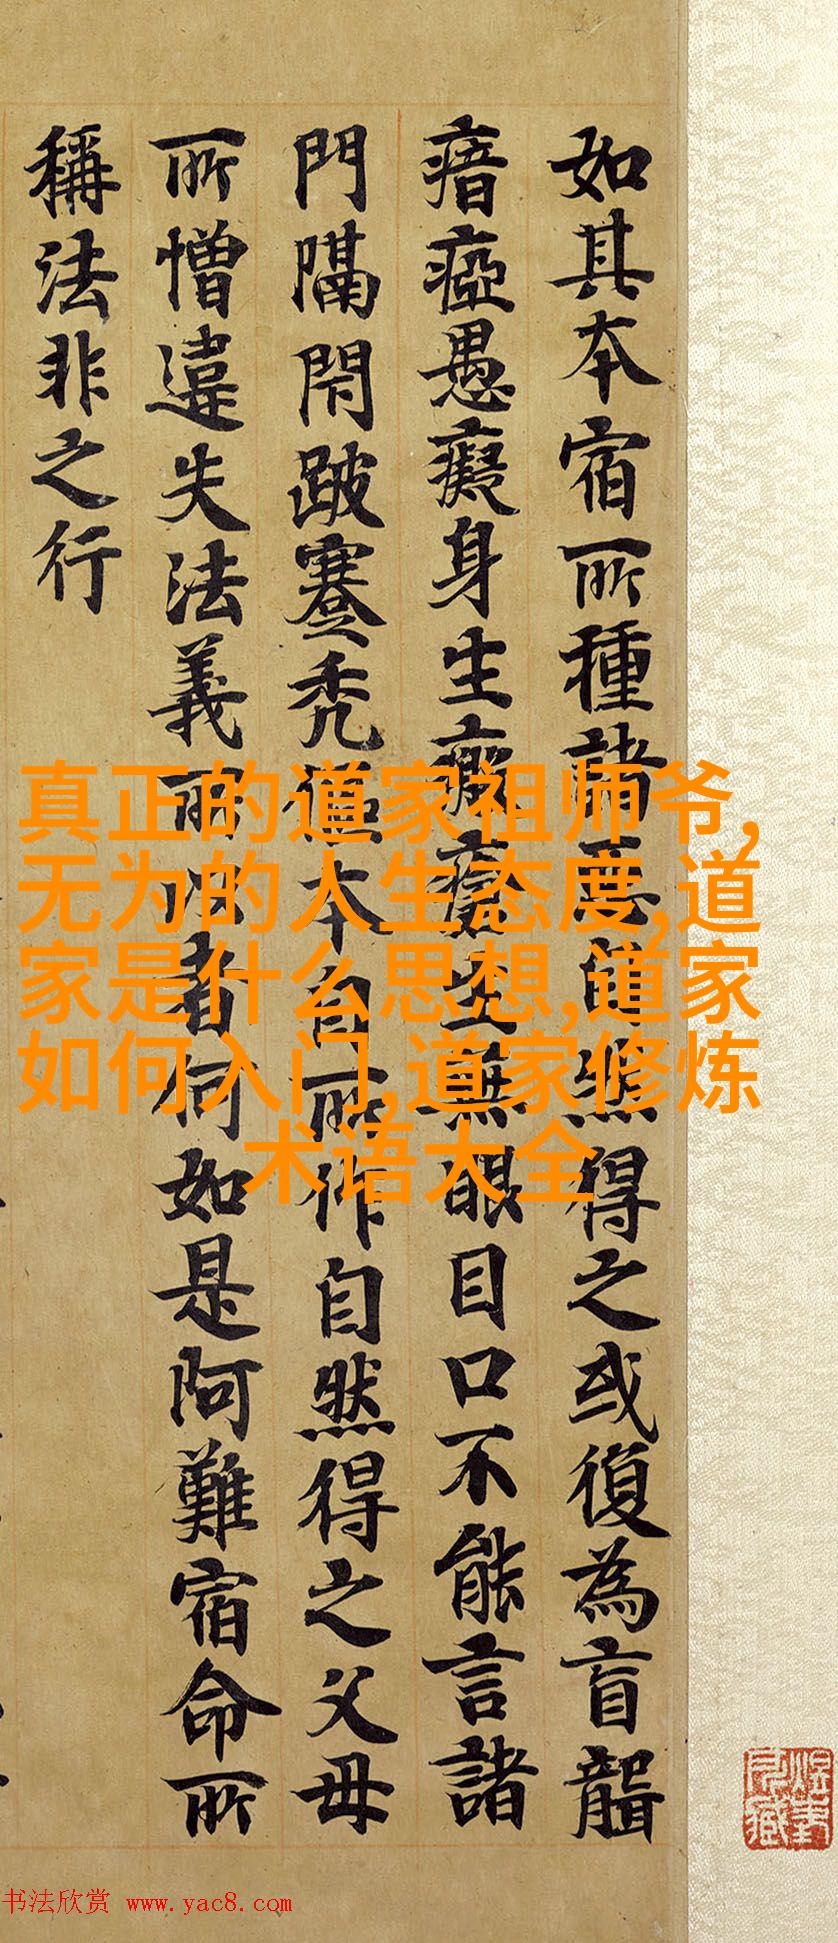 如其本宿所種諸惡自然得之或復為盲聾
瘖瘂愚癡身生無眼目口不能言諸
門隔閇跛蹇禿本自所作自然得之父母
所憎違失法義所以者何如是阿難宿命所
稱法非之行
真正的道家祖师爷,
无为的人生态度,道
家是什么思想,道家
如何入门,道家修炼
术语大全
书法欣赏 www.yac8.com